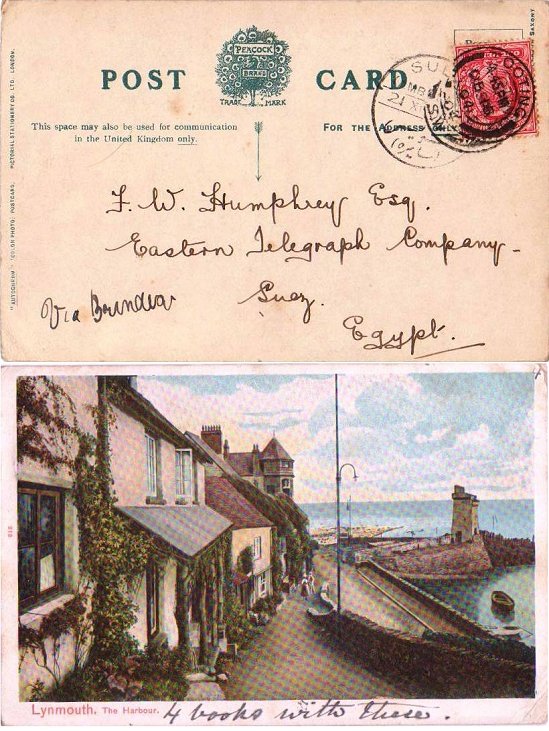 PEACOCK
BRAND
TRADE MARK
POST CARD
This space may also be used for communication
in the United Kingdom only.
FOR THE ADDRESS ONLY
"AUTOCHROM" (COLOR PHOTO) POSTCARD. PICTORIAL STATIONERY CO. LTD. LONDON.
SAXONY
TOOTING
F. W. Humphrey Esq.
Eastern Telegraph Company -
Via Brindisi
Suez.
Egypt.
4
Lynmouth. The Harbour. 4 books with these.